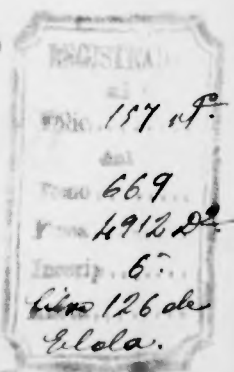 REGISTRADO
al
Folio 157 vt.
del
Tomo 669
Finca 4912 Dº
Inscrip. 6ª
libro 126 de
Elda.